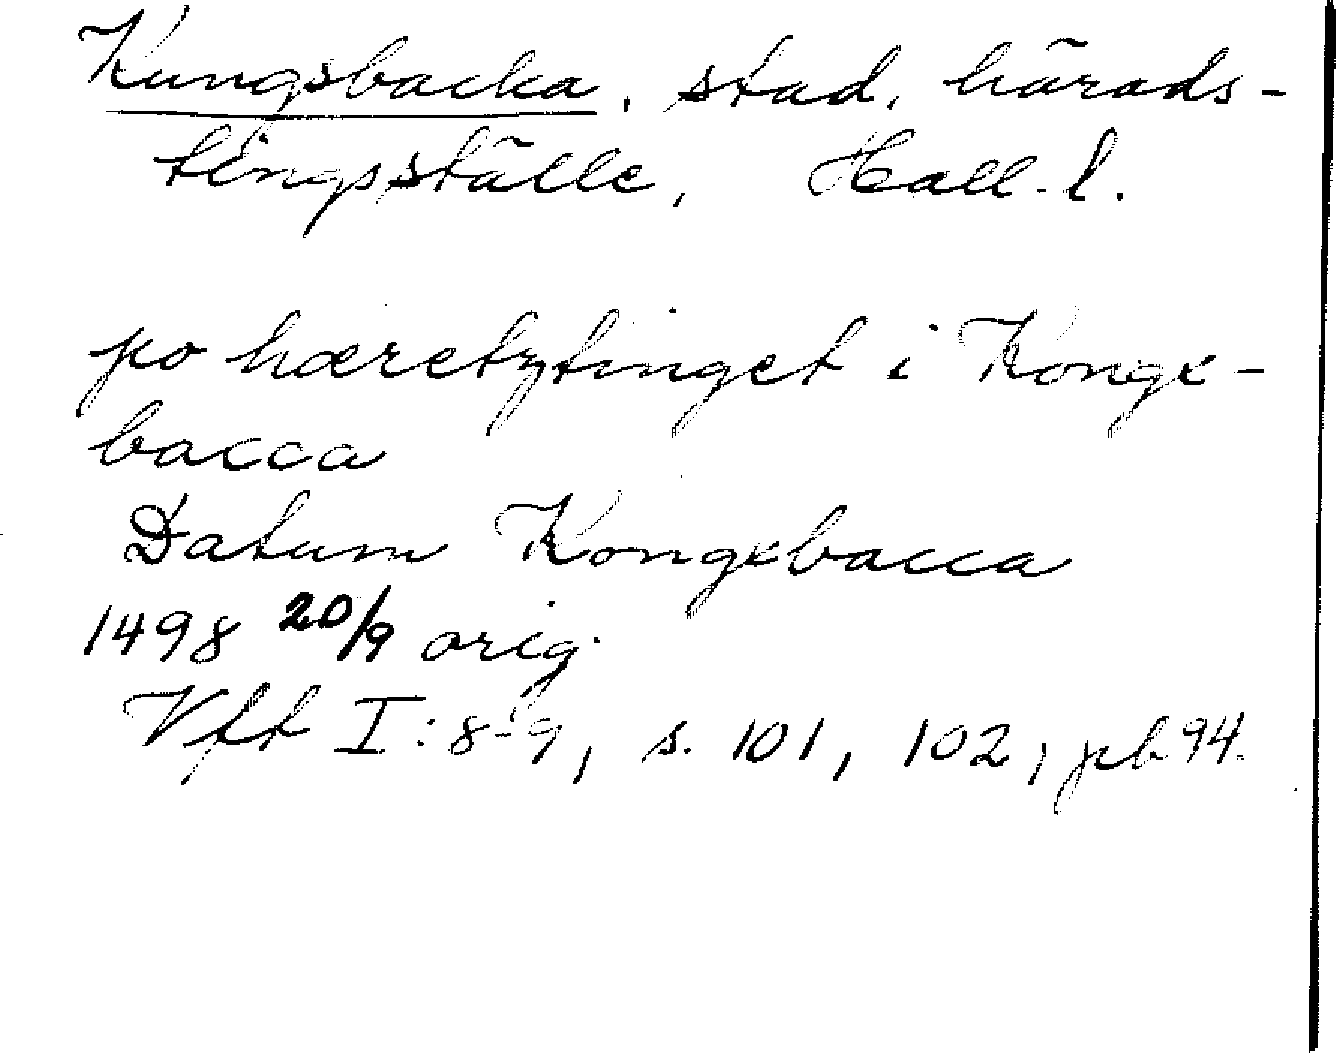 Kungsbacka, stad, härads-
tingsställe, Hall. l.
po hæretztinget i Konge-
bacca
Datum Kongebacca
1498 20/9 orig.
Vft I:8-9, s. 101, 102, pb 94.